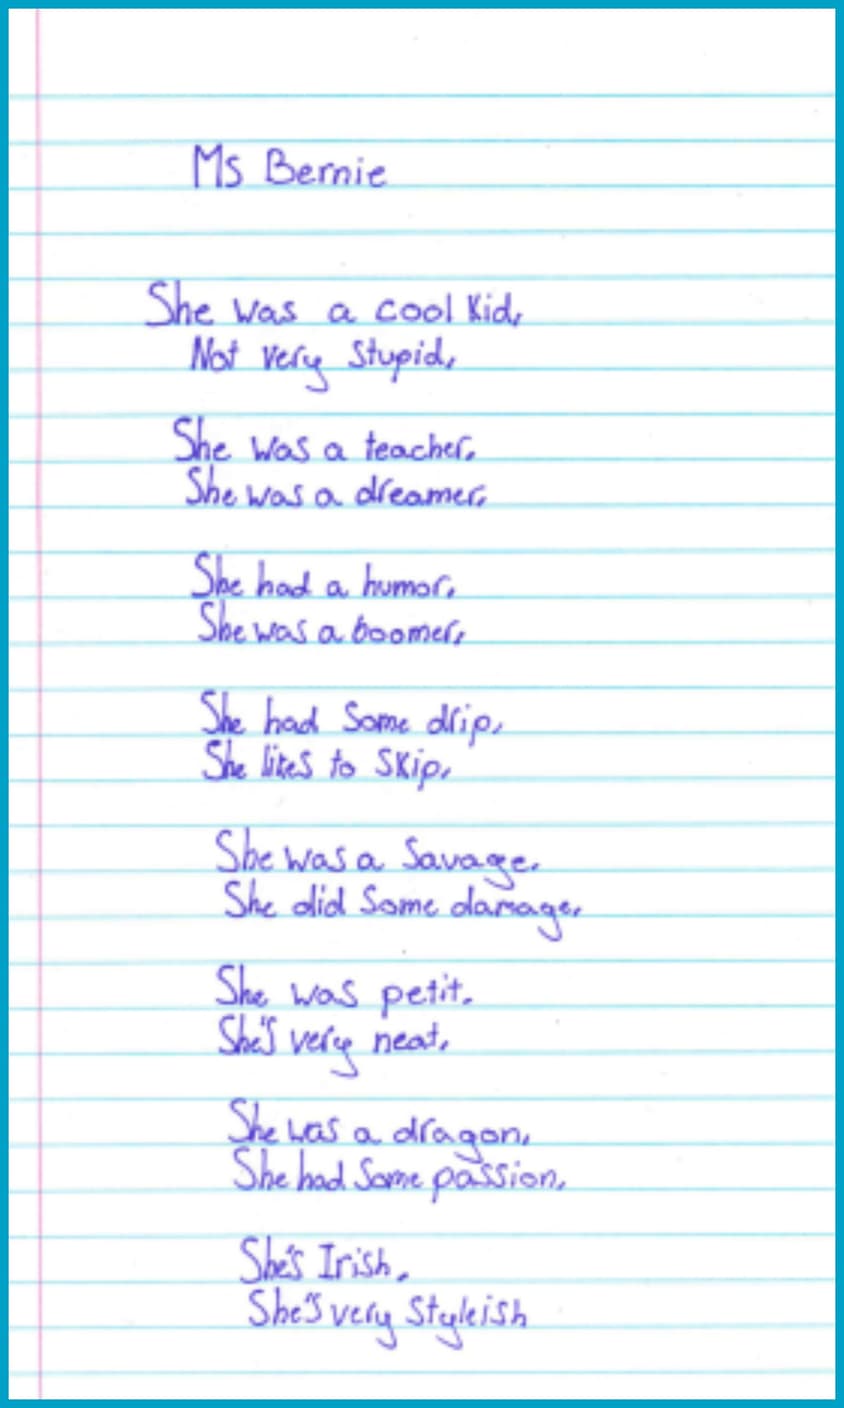 Ms Bernie
She was a cool kid,
Not very stupid,
She was a teacher,
She was a dreamer,
She had a humor,
She was a boomer,
She had some drip,
She likes to skip,
She was a savage,
She did some damage,
She was petit,
She's very neat,
She was a dragon,
She had some passion,
She's Irish,
She's very styleish